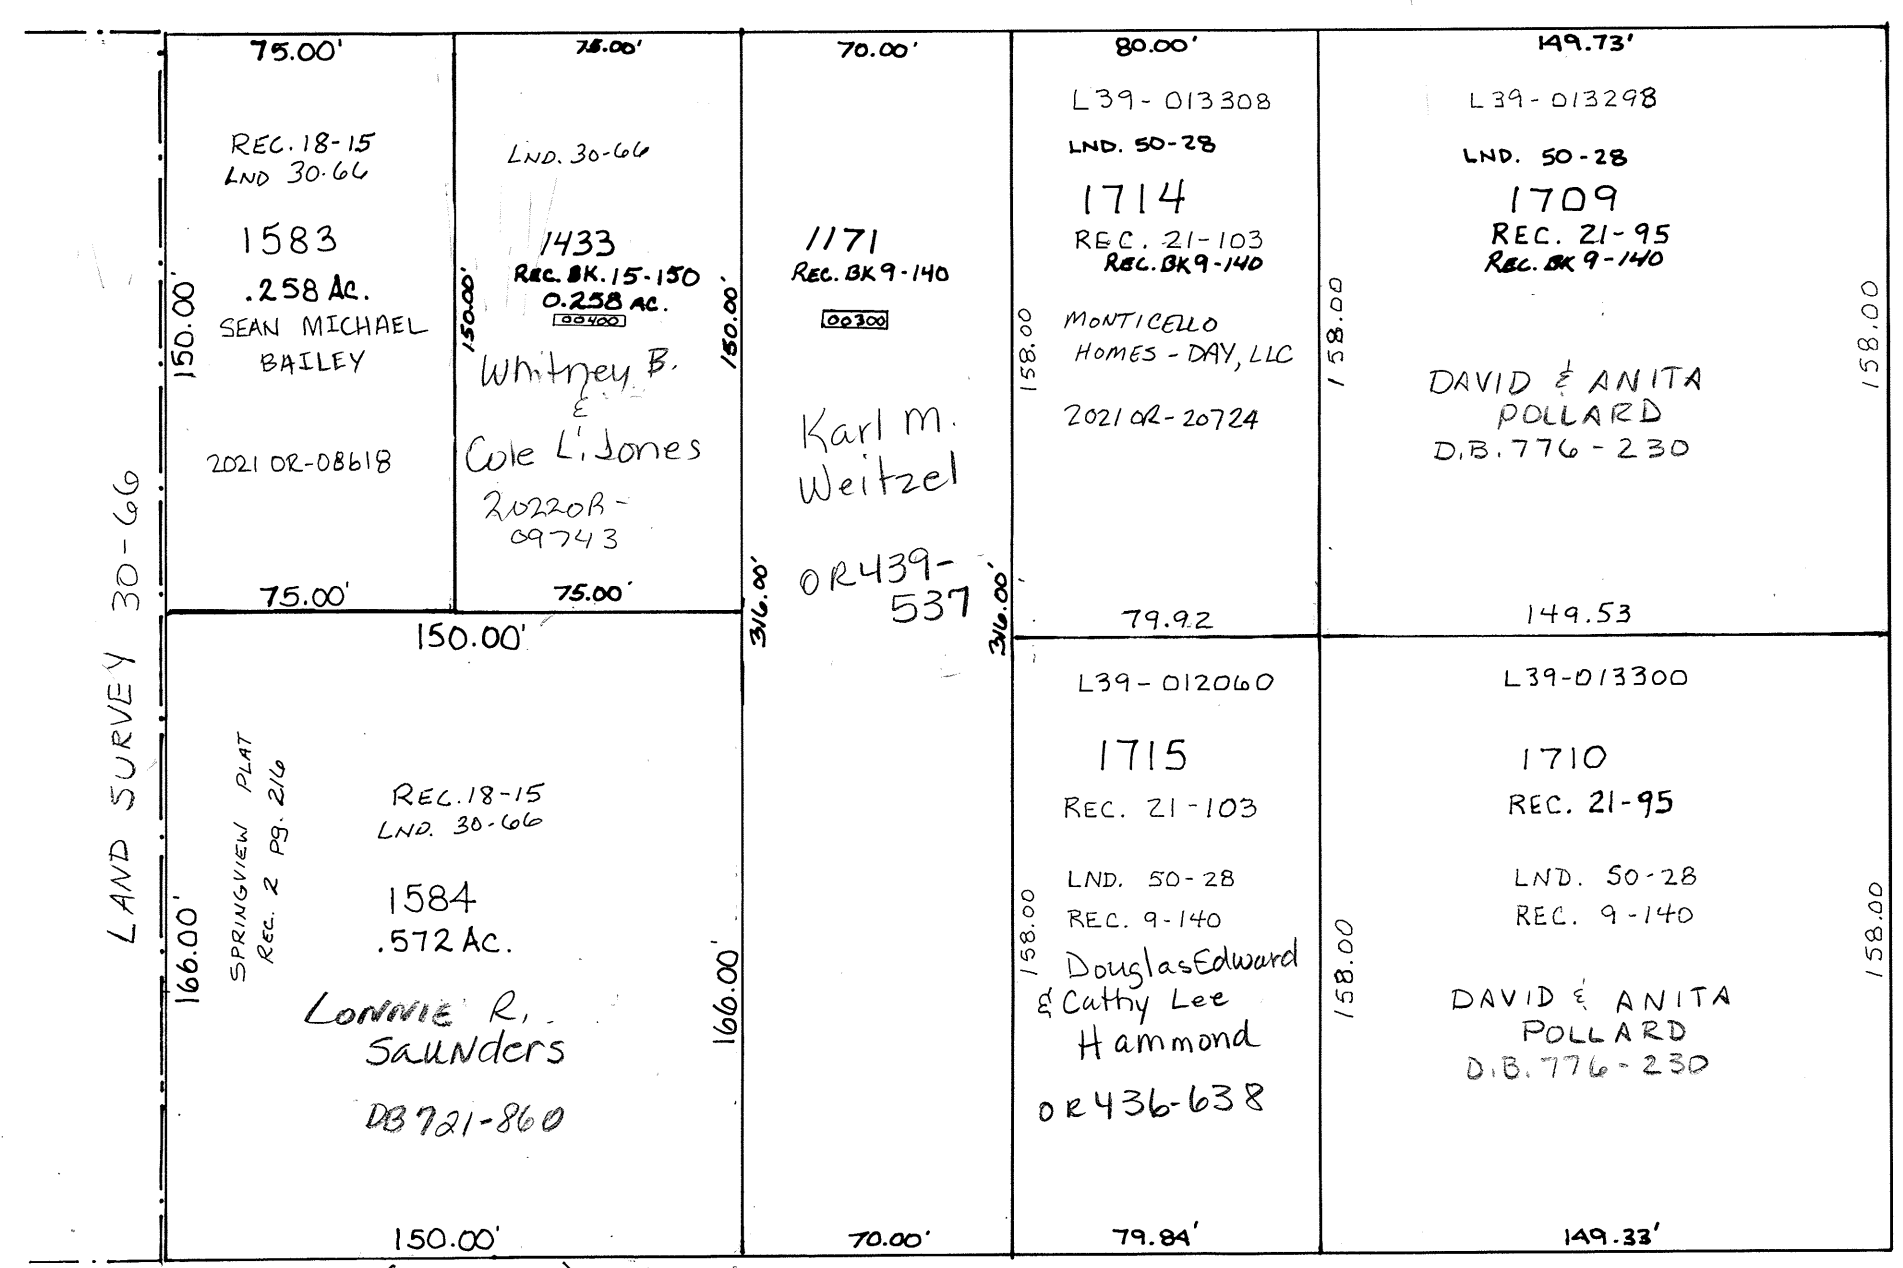 LAND SURVEY 30-66
75.00'
REC. 18-15
LND 30-66
1583
.258 AC.
SEAN MICHAEL
BAILEY
2021 OR-08618
150.00'
75.00'
75.00'
LND. 30-66
1433
REC. BK. 15-150
0.258 AC.
00400
Whitney B.
&
Cole L. Jones
2022OR-
09743
150.00'
150.00'
75.00'
70.00'
1171
REC. BK 9-140
00300
Karl M.
Weitzel
OR439-
537
316.00'
316.00'
70.00'
80.00'
L39-013308
LND. 50-28
1714
REC. 21-103
REC. BK 9-140
MONTICELLO
HOMES - DAY, LLC
2021 OR-20724
158.00
79.92
149.73'
L39-013298
LND. 50-28
1709
REC. 21-95
REC. BK 9-140
DAVID & ANITA
POLLARD
D.B. 776-230
158.00
158.00
149.53
150.00'
SPRINGVIEW PLAT
REC. 2 Pg. 216
REC. 18-15
LND. 30-66
1584
.572 AC.
LONNIE R.
SAUNders
DB 721-860
166.00'
166.00'
150.00'
L39-012060
1715
REC. 21-103
LND. 50-28
REC. 9-140
Douglas Edward
& Cathy Lee
Hammond
OR436-638
158.00
79.84'
L39-013300
1710
REC. 21-95
LND. 50-28
REC. 9-140
DAVID & ANITA
POLLARD
D.B. 776-230
158.00
158.00
149.33'